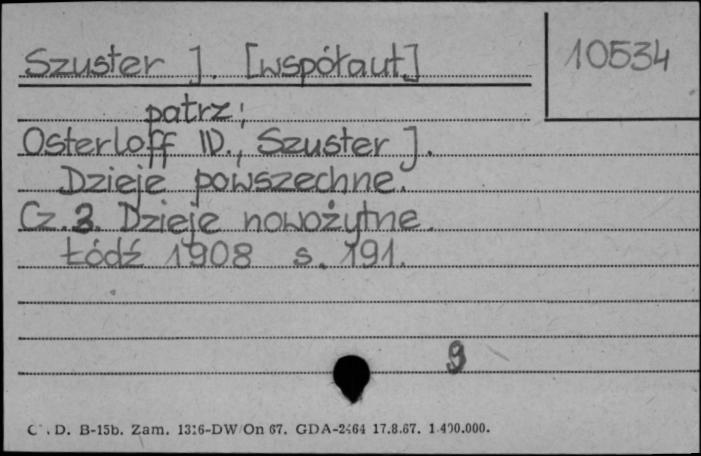 Szuster J. [współaut]
10534
patrz:
Osterloff W., Szuster J.
Dzieje powszechne.
Cz. 3. Dzieje nowożytne.
Łódź 1908 s. 191.
9
D. B-15b. Zam. 1316-DW/On 67. GDA-2464 17.8.67. 1.400.000.